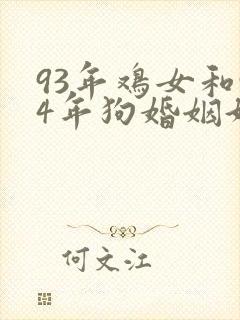 93年鸡女和
4年狗婚姻
何文江